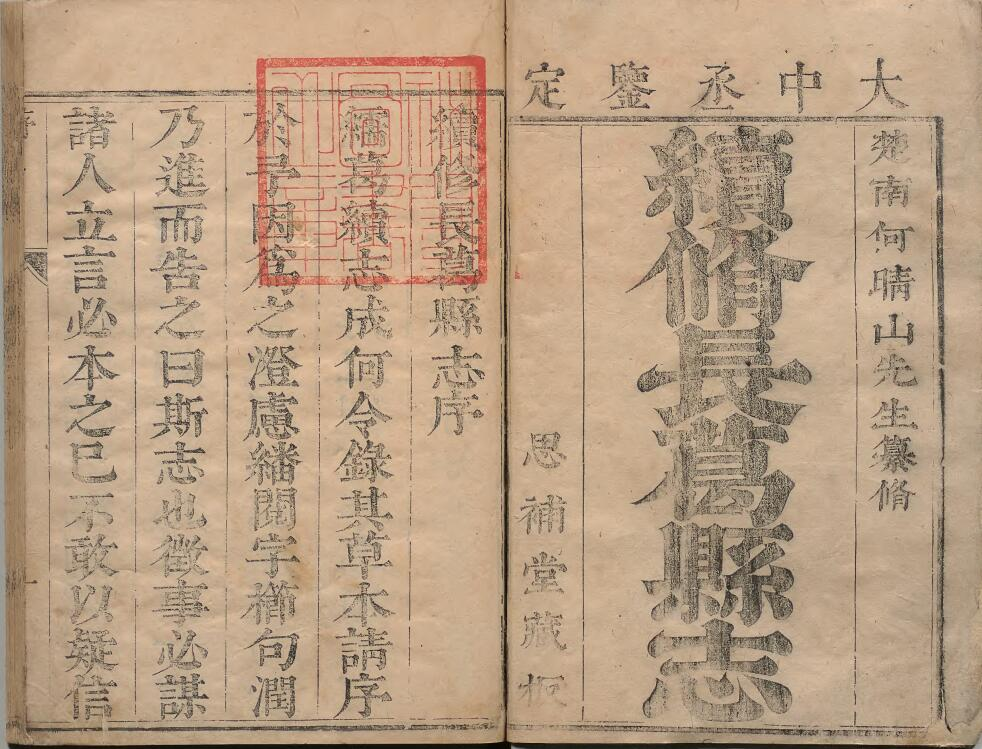 大中丞鑒定
楚南何晴山先生纂脩
續脩長葛縣志
思補堂藏板
續修長葛縣志序
葛續志成何令錄其草本請序
於予因爲之澄慮繙閱字櫛句潤
乃進而告之曰斯志也徵事必謀
諸人立言必本之已不敢以疑信